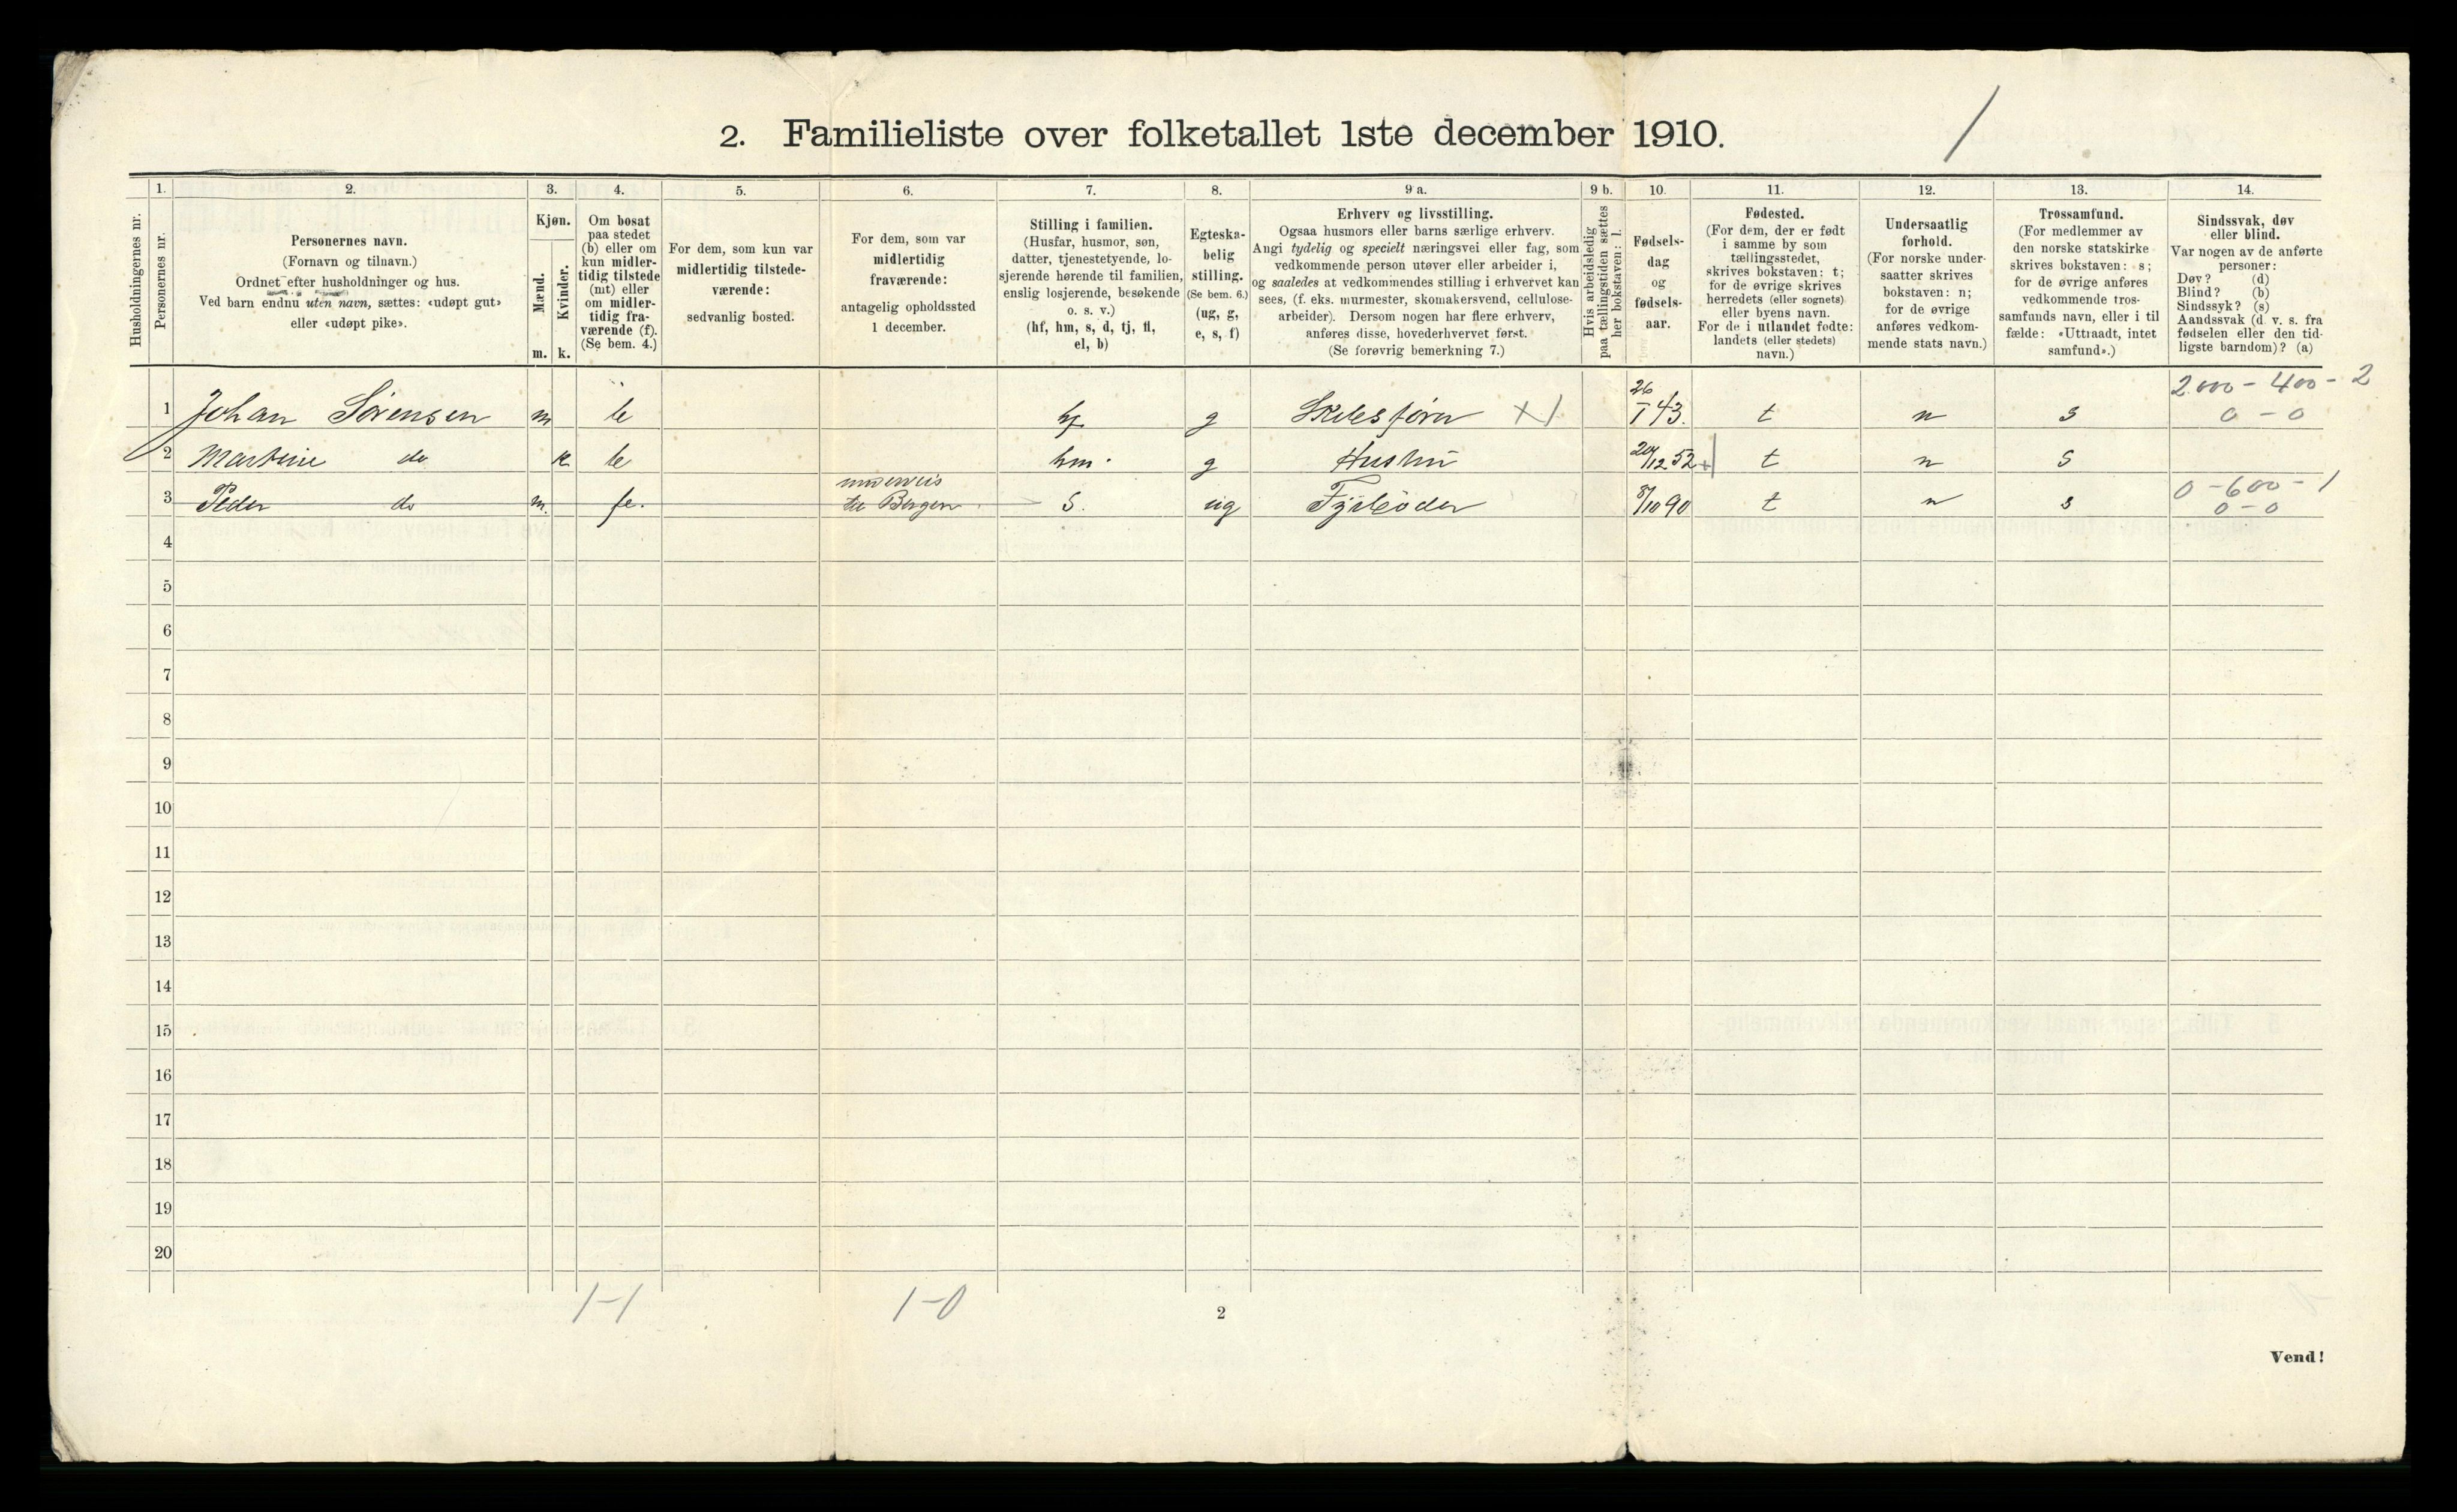 2. Familieliste over folketallet 1ste december 1910.
1. 2. 3. 4. 5. 6. 7. 8. 9 a. 9 b. 10. 11. 12. 13. 14.
Husholdningernes nr.
Personernes nr.
Personernes navn.
(Fornavn og tilnavn.)
Ordnet efter husholdninger og hus.
Ved barn endnu uten navn, sættes: «udøpt gut»
eller «udøpt pike».
Kjøn.
Mænd.
Kvinder.
m. k.
Om bosat
paa stedet
(b) eller om
kun midler-
tidig tilstede
(mt) eller
om midler-
tidig fra-
værende (f).
(Se bem. 4.)
For dem, som kun var
midlertidig tilstede-
værende:
sedvanlig bosted.
For dem, som var
midlertidig
fraværende:
antagelig opholdssted
1 december.
Stilling i familien.
(Husfar, husmor, søn,
datter, tjenestetyende, lo-
sjerende hørende til familien,
enslig losjerende, besøkende
o. s. v.)
(hf, hm, s, d, tj, fl,
el, b)
Egteska-
belig
stilling.
(Se bem. 6.)
(ug, g,
e, s, f)
Erhverv og livsstilling.
Ogsaa husmors eller barns særlige erhverv.
Angi tydelig og specielt næringsvei eller fag, som
vedkommende person utøver eller arbeider i,
og saaledes at vedkommendes stilling i erhvervet kan
sees, (f. eks. murmester, skomakersvend, cellulose-
arbeider). Dersom nogen har flere erhverv,
anføres disse, hovederhvervet først.
(Se forøvrig bemerkning 7.)
Hvis arbeidsledig
paa tællingstiden sættes
her bokstaven: l.
Fødsels-
dag
og
fødsels-
aar.
Fødested.
(For dem, der er født
i samme by som
tællingsstedet,
skrives bokstaven: t;
for de øvrige skrives
herredets (eller sognets)
eller byens navn.
For de i utlandet fødte:
landets (eller stedets)
navn.)
Undersaatlig
forhold.
(For norske under-
saatter skrives
bokstaven: n;
for de øvrige
anføres vedkom-
mende stats navn.)
Trossamfund.
(For medlemmer av
den norske statskirke
skrives bokstaven: s;
for de øvrige anføres
vedkommende tros-
samfunds navn, eller i til
fælde: «Uttraadt, intet
samfund».)
Sindssvak, døv
eller blind.
Var nogen av de anførte
personer:
Døv? (d)
Blind? (b)
Sindssyk? (s)
Aandssvak (d. v. s. fra
fødselen eller den tid-
ligste barndom)? (a)
2000 - 400 - 2
1 Johan Sörensen m b hf g Skibsfører X 1 26/1 43. t n s 0 - 0
2 Martine do k b hm. g Hustru 20/12 52 t n s
underveis
3 Peder do m. f. til Bergen s. ug Fyrböder 8/10 90 t n s 0 - 600 - 1
0 - 0
4
5
6
7
8
9
10
11
12
13
14
15
16
17
18
19
20
1-1 1-0
2
Vend!